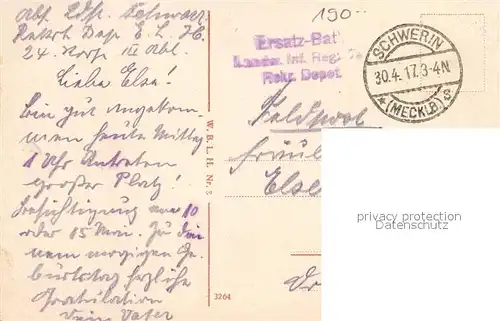 Abs. Ldst. Schwarz
Rekrt. Dep. E. L. I. R.
24. Korp. III Abl.
Liebe Else!
Bin gut angekom-
men heute Mittag
1 Uhr Antreten
großer Platz!
Besichtigung von 10
oder 15 Min. Zu dei-
nem morgigen Ge-
burtstag herzliche
Gratulation
Dein Vater
W. B. L. H. Nr.
3264
190--
Ersatz-Bat
Landw. Inf. Regt.
Rekr. Depot.
SCHWERIN
30.4.17.3-4N
*(MECKLB)s
Feldpost
Fräulein
Else
privacy protection
privacy protection